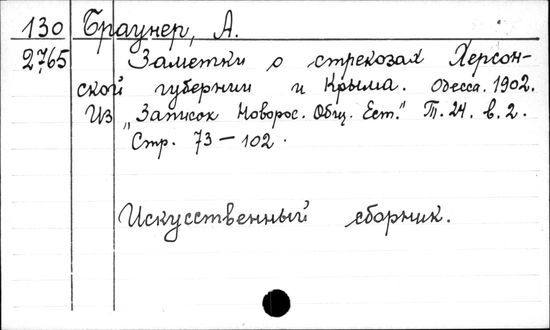 130 Браунер, А.
2765 Заметки о стрекозах Херсон-
ской губернии и Крыма. Одесса. 1902.
Из „Записок Новорос. Общ. Ест." Т. 24. в. 2.
Стр. 73 — 102.
Искусственный сборник.